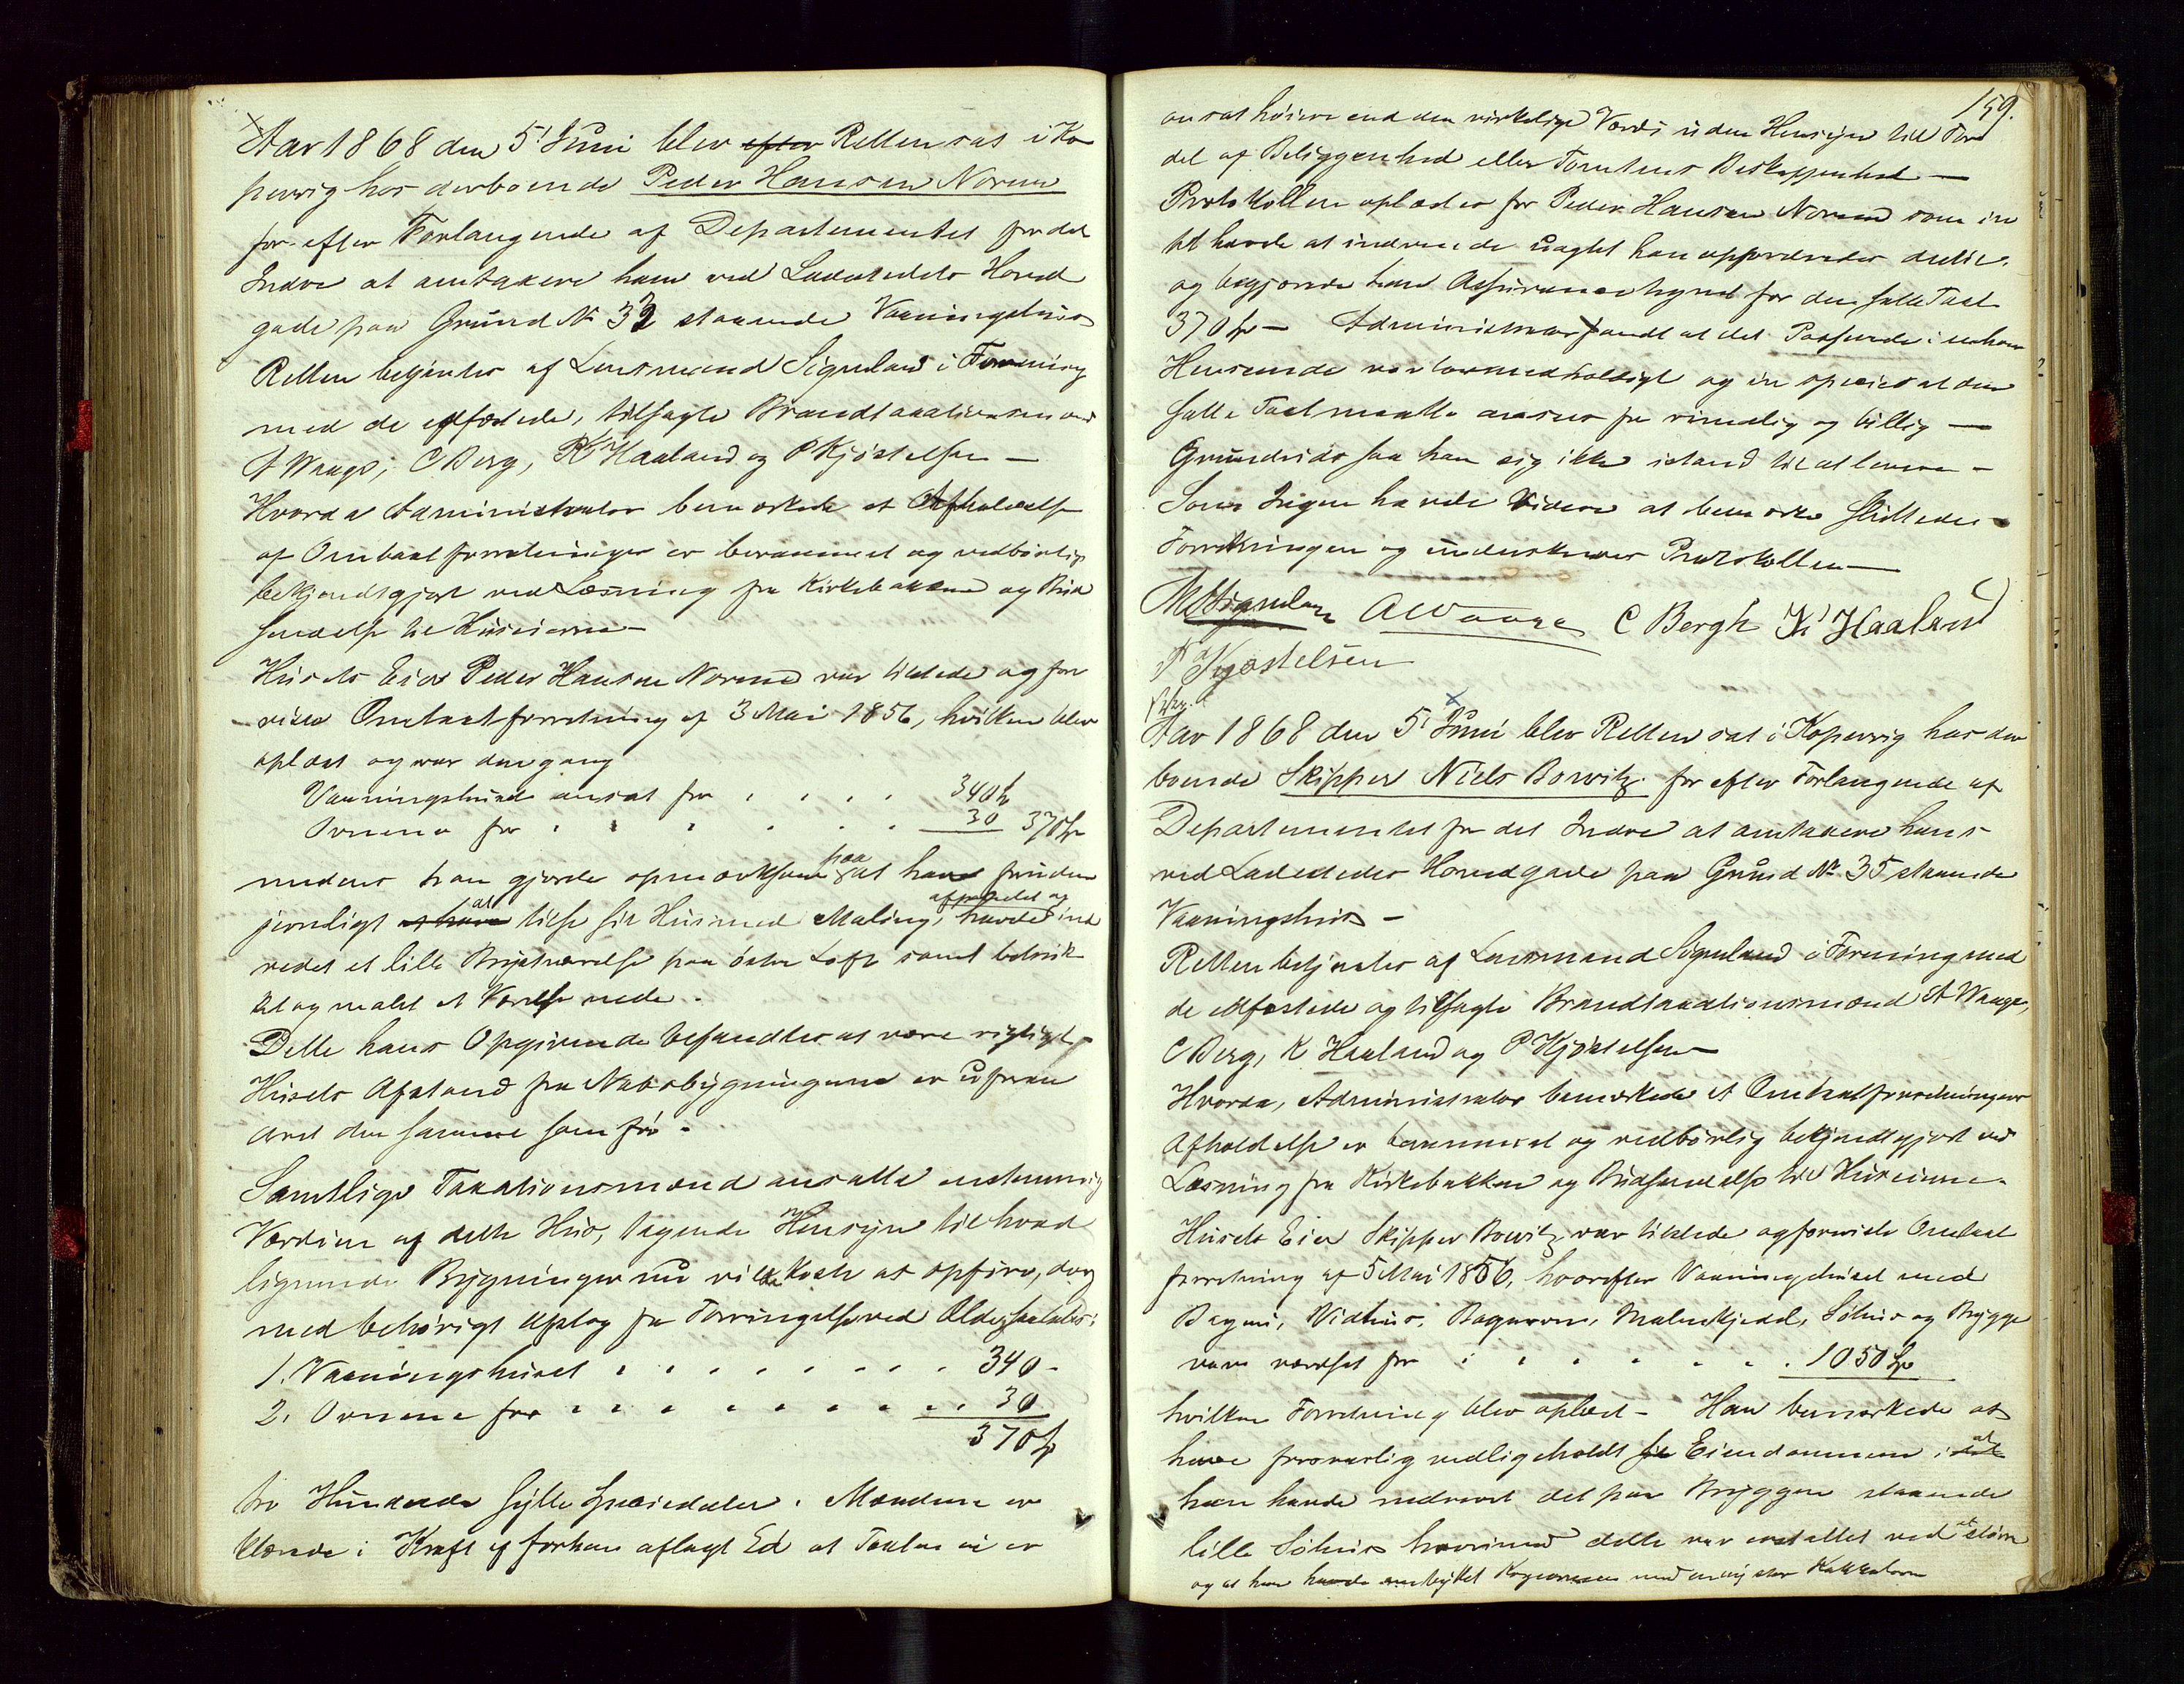 Aar 1868 den 5' Juni blev efter Retten sat i Ko
pervig hos derboende Peder Hansen Norem
for efter Forlangende af Departementet for det
Indre at omtaxere hans ved Ladestedets Hoved
gade paa Grund No 32 staaende Vaaningshus
Retten betjentes af Lensmand Signeland i Forening
med de edfæstede, tilsagte Brandtaxationsmænd
A Waage, C Berg, K Haaland og P Kjøstelsen —
Hvorda Administrator bemærkede at Afholdelse
af Omtaxtforretninger er berammet og vedbørlig
bekjendtgjort ved Læsning fra Kirkebakkene og Bud
sendelse til Huseierne —
Husets Eier Peder Hansen Norem var tilstede og fore
viste Omtaxtforretning af 3 Mai 1856, hvilken blev
oplæst og var dengang
Vaaningshuset ansat for . . . . 340 Sp
Ovnene for . . . . . . 30 370 Sp
medens han gjorde opmærksom paa at have foruden
jevnligt at have at tilse sit Hus med Maling, havde afpanelet og ind
redet et lille Brystværelse paa østre Loft samt betruk
ket og malet et Værelse nede.
Dette hans Opgivende befandtes at være rigtigt.
Husets Afstand fra Nabobygningerne er uforan
dret den samme som før.
Samtlige Taxationsmænd ansatte enstemmig
Værdien af dette Hus, tagende Hensyn til hvad
lignende Bygninger nu vilde koste at opføre, dog
med behørigt Afslag for Forringelse ved Ælde, saaledes:
1. Vaaningshuset . . . . . . . . 340 -
2. Ovnene for . . . . . . . . . 30
370 Sp
tre Hundrede sytti Speciedaler. Mændene er
klærede i Kraft af forhen aflagt Ed at Taxten ei er
159.
ansat høiere end den virkelige Værdi uden Hensyn til For
del af Beliggenhed eller Tomtens Beskaffenhed —
Protokollen oplæstes for Peder Hansen Norem som in
tet havde at indvende uagtet han opfordredes dertil.
og begjærede han Assurancetegnet for den satte Taxt
370 Sp — Administrator fandt at det Passerede i enhver
Henseende var lovmedholdigt og in specie at den
satte Taxt maatte ansees for rimelig og billig —
Grundrids saa han sig ikke istand til at levere —
Som Ingen havde videre at bemærke sluttedes
Forretningen og underskreves Protokollen —
Signeland A Waage C Bergh K Haaland
P Kjøstelsen
Aar 1868 den 5' Juni blev Retten sat i Kopervig hos der
boende Skipper Niels Bowitz for efter Forlangende af
Departementet for det Indre at omtaxere hans
ved Ladestedets Hovedgade paa Grund No 35 staaende
Vaaningshus —
Retten betjentes af Lensmand Signeland i Forening med
de edfæstede og tilsagte Brandtaxationsmænd A Waage,
C Berg, K Haaland og P Kjøstelsen —
Hvorda, Administrator bemærkede at Omtaxtforretningens
Afholdelse er berammet og vedbørlig bekjendtgjort ved
Læsning fra Kirkebakken og Budsendelse til Huseierne.
Husets Eier Skipper Bowitz var tilstede og foreviste Omtaxt
forretning af 5 Mai 1856, hvorefter Vaaningshuset med
Bageri, Vedhus, Bagerovn, Malerkjedel, Søhus og Brygge
vare værdsat for . . . . . . . 1050 Sp
hvilken Forretning blev oplæst — Han bemærkede at
have forsvarlig vedligeholdt sin Eiendommen, at
han havde nedrevet det paa Bryggen staaende
lille Søhus hvorimod dette var erstattet ved et større
og at han havde ombyttet Kogeovnen med en ny stor Kakkelovn